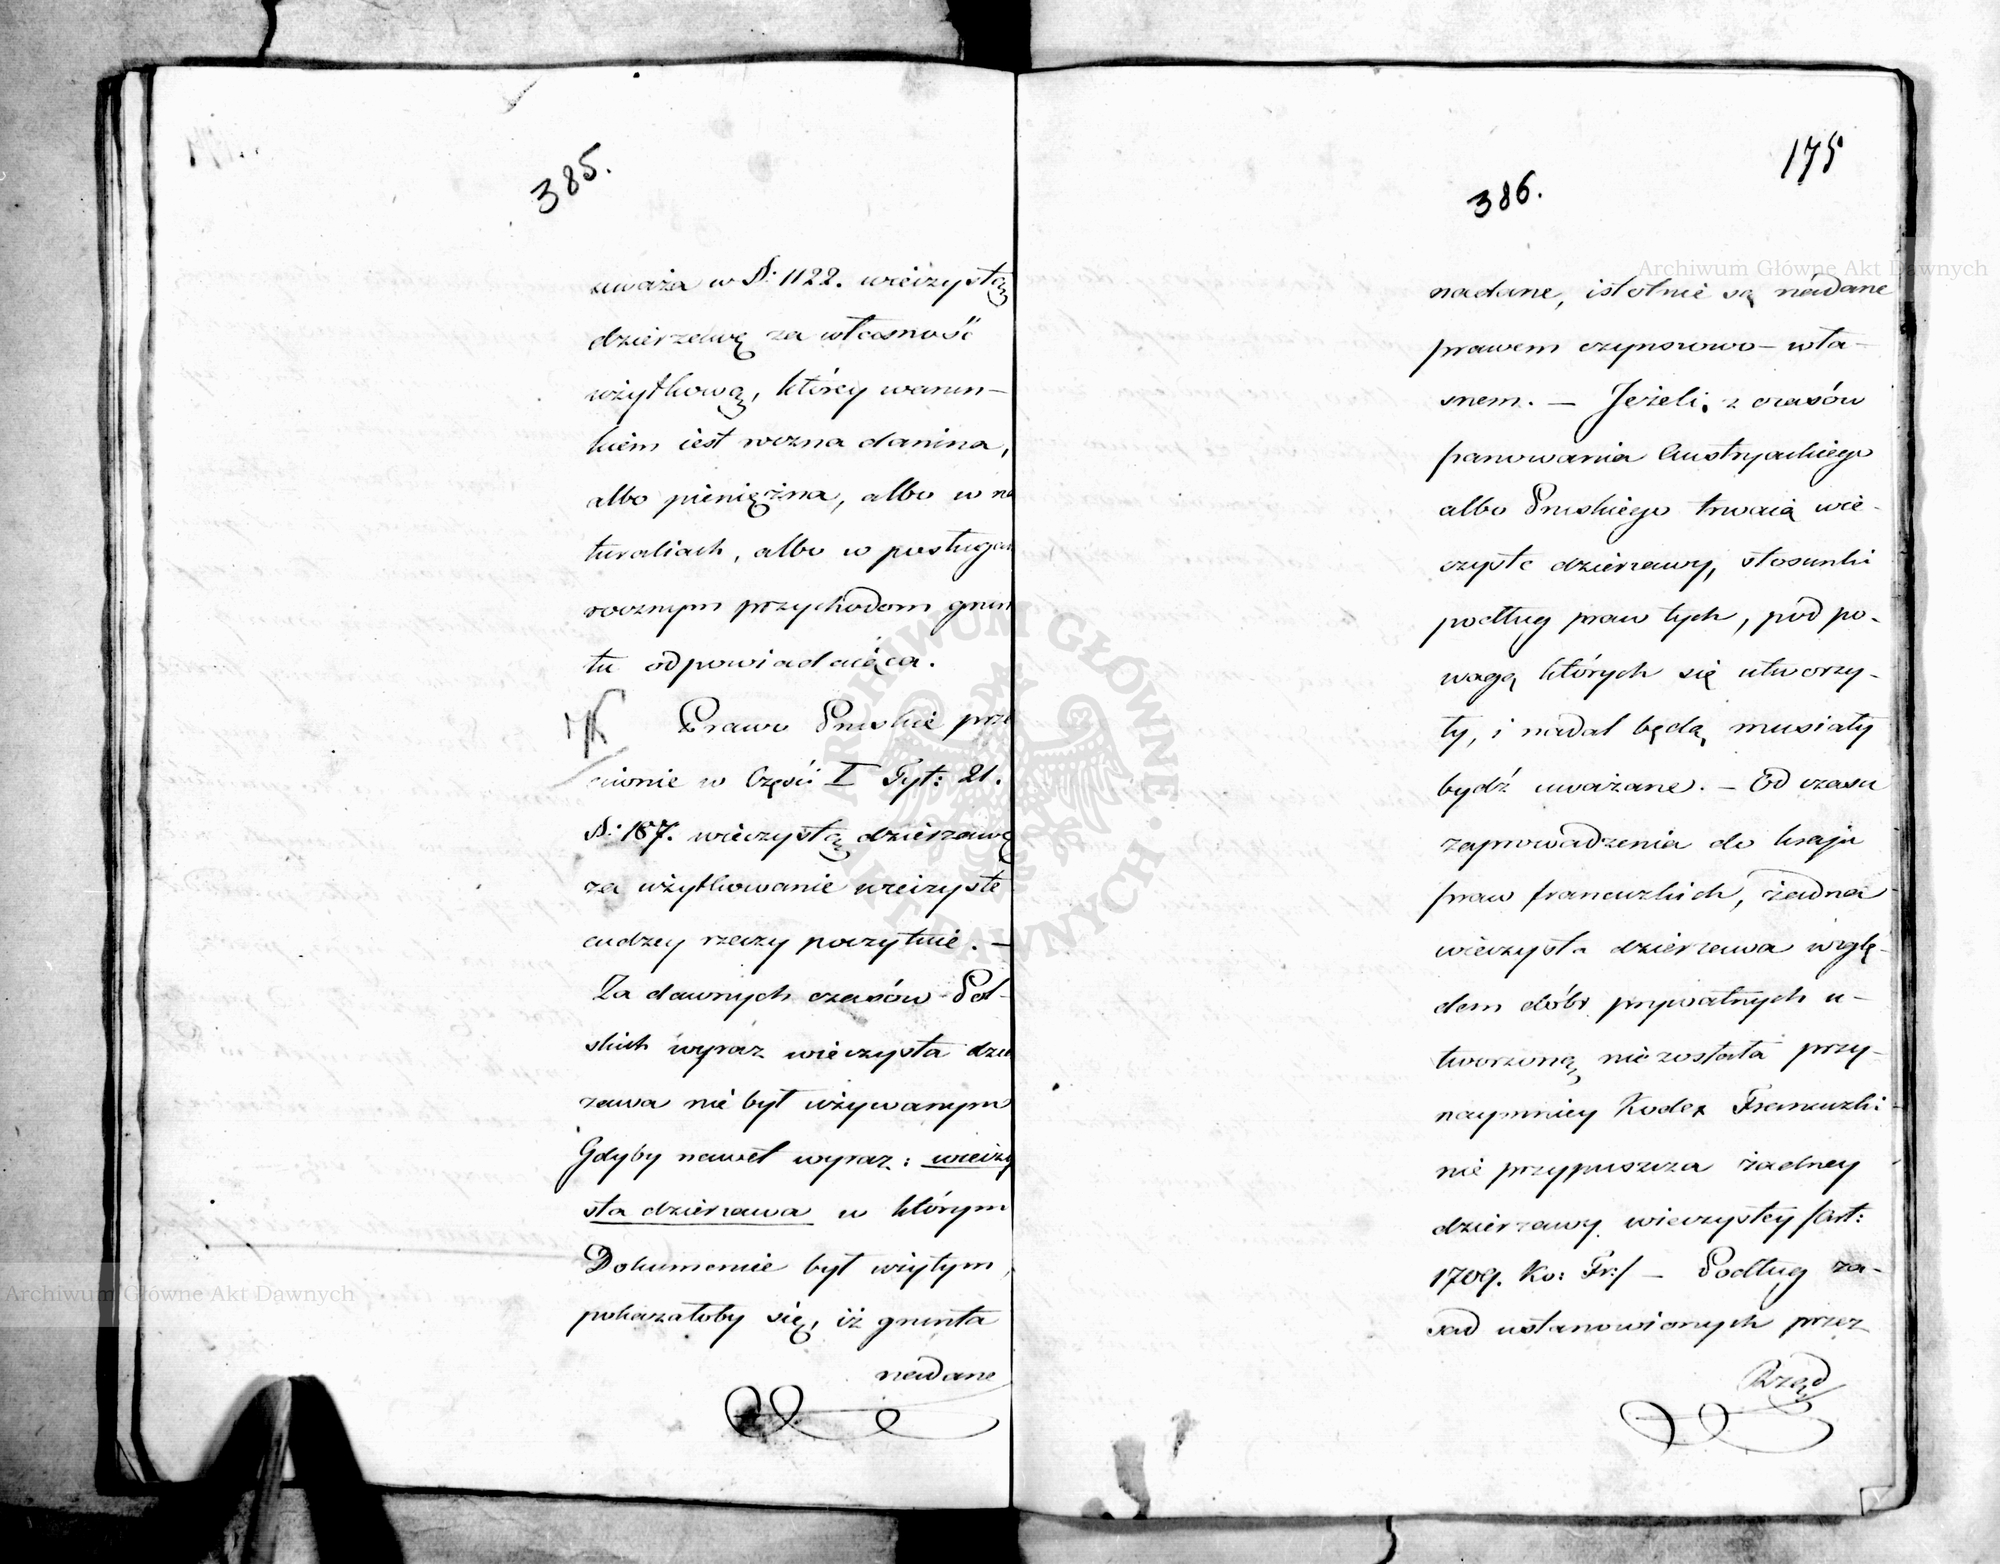 385.
uważa w §: 1122. wieczystą
dzierżawę za własność
użytkową, którey warun-
kiem iest roczna danina,
albo pieniężna, albo w na
turaliach, albo w posługach
rocznym przychodom grun
tu odpowiadaiąca.
Prawo Pruskie prze
ciwnie w Części I Tyt: 21.
§: 187. wieczystą dzierżawę
za użytkowanie wieczyste
cudzey rzeczy poczytuie. —
Za dawnych czasów Pol-
skich wyraz wieczysta dzier
żawa nie był używanym
Gdyby nawet wyraz: wieczy
sta dzierżawa w którym
Dokumencie był użytym,
pokazałoby się, iż grunta
nadane
175
386.
nadane, istotnie są nadane
prawem czynszowo - wła-
snem. — Jeżeli z czasów
panowania Austryackiego
albo Pruskiego trwaią wie-
czyste dzierżawy, stosunki
podług praw tych, pod po-
wagą których się utworzy-
ły, i nadal będą musiały
bydź uważane. — Od czasu
zaprowadzenia do kraju
praw francuzkich, żadna
wieczysta dzierżawa wzglę-
dem dóbr prywatnych u-
tworzoną nie została przy-
naymniey Kodex Francuzki
nie przypuszcza żadney
dzierżawy wieczystey /Art:
1709. Ko: Fr:/ — Podług za-
sad ustanowionych przez
Rząd
Archiwum Główne Akt Dawnych
Archiwum Główne Akt Dawnych
ARCHIWUM GŁÓWNE AKT DAWNYCH